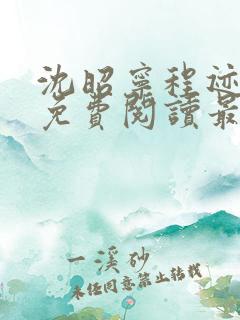 沈昭寧程迹
免費閱讀最
一溪砂
未经同意禁止转载